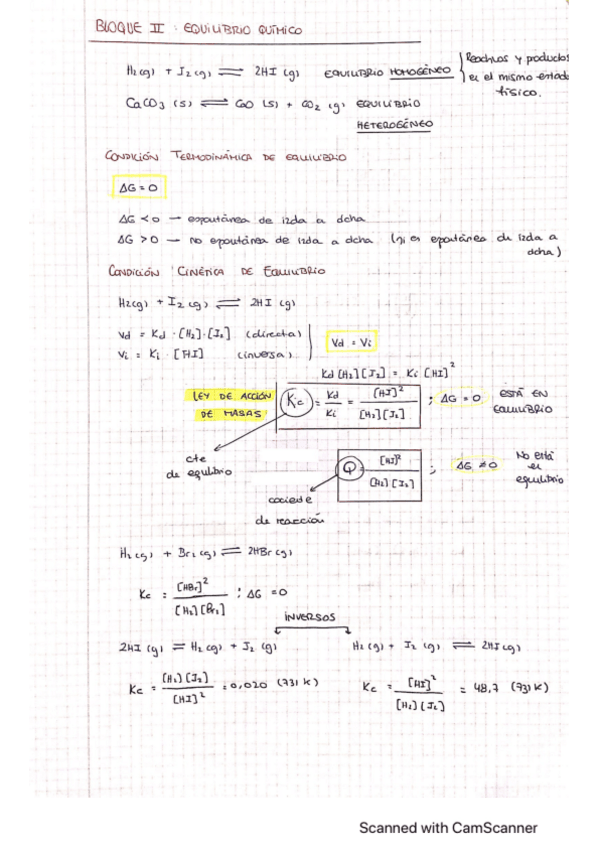 BLOQUE II : EQUILIBRIO QUÍMICO
H2(g) + I2(g) ⇌ 2HI (g) EQUILIBRIO HOMOGÉNEO
Reactivos y productos
en el mismo estado
físico.
CaCO3 (s) ⇌ CaO (s) + CO2 (g) EQUILIBRIO
HETEROGÉNEO
CONDICIÓN TERMODINÁMICA DE EQUILIBRIO
ΔG = 0
ΔG < 0 — espontánea de izda a dcha
ΔG > 0 — no espontánea de izda a dcha (si es espontánea de izda a
dcha)
CONDICIÓN CINÉTICA DE EQUILIBRIO
H2(g) + I2(g) ⇌ 2HI (g)
Vd = Kd · [H2]·[I2] (directa)
Vi = Ki · [HI] (inversa)
Vd = Vi
Kd [H2][I2] = Ki [HI]²
LEY DE ACCIÓN
DE MASAS
Kc = Kd/Ki = [HI]²/[H2][I2] ; ΔG = 0 ESTÁ EN
EQUILIBRIO
cte
de equlibrio
Q = [HI]²/[H2][I2] ; ΔG ≠ 0 No está
el
equilibrio
cociete
de reacción
H2(g) + Br2(g) ⇌ 2HBr(g)
Kc = [HBr]²/[H2][Br2] ; ΔG = 0
INVERSOS
2HI (g) ⇌ H2 (g) + I2 (g) H2(g) + I2 (g) ⇌ 2HI(g)
Kc = [H2][I2]/[HI]² = 0,020 (731 K) Kc = [HI]²/[H2][I2] = 48,7 (731 K)
Scanned with CamScanner